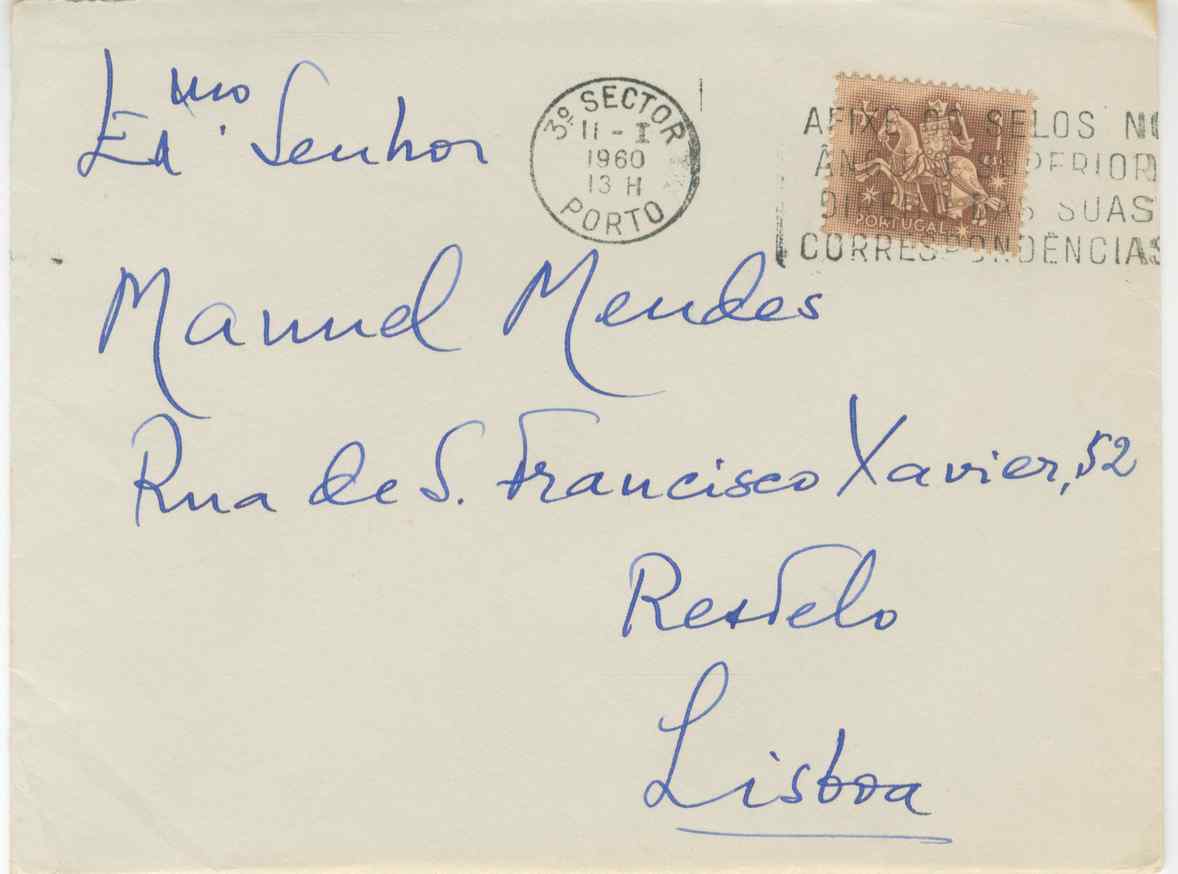 Exmo. Senhor
3º SECTOR
11 - I
1960
13 H
PORTO
AFIXE OS SELOS NO
ÂNGULO SUPERIOR
DAS SUAS
CORRESPONDÊNCIAS
PORTUGAL
Manuel Mendes
Rua de S. Francisco Xavier, 52
Restelo
Lisboa